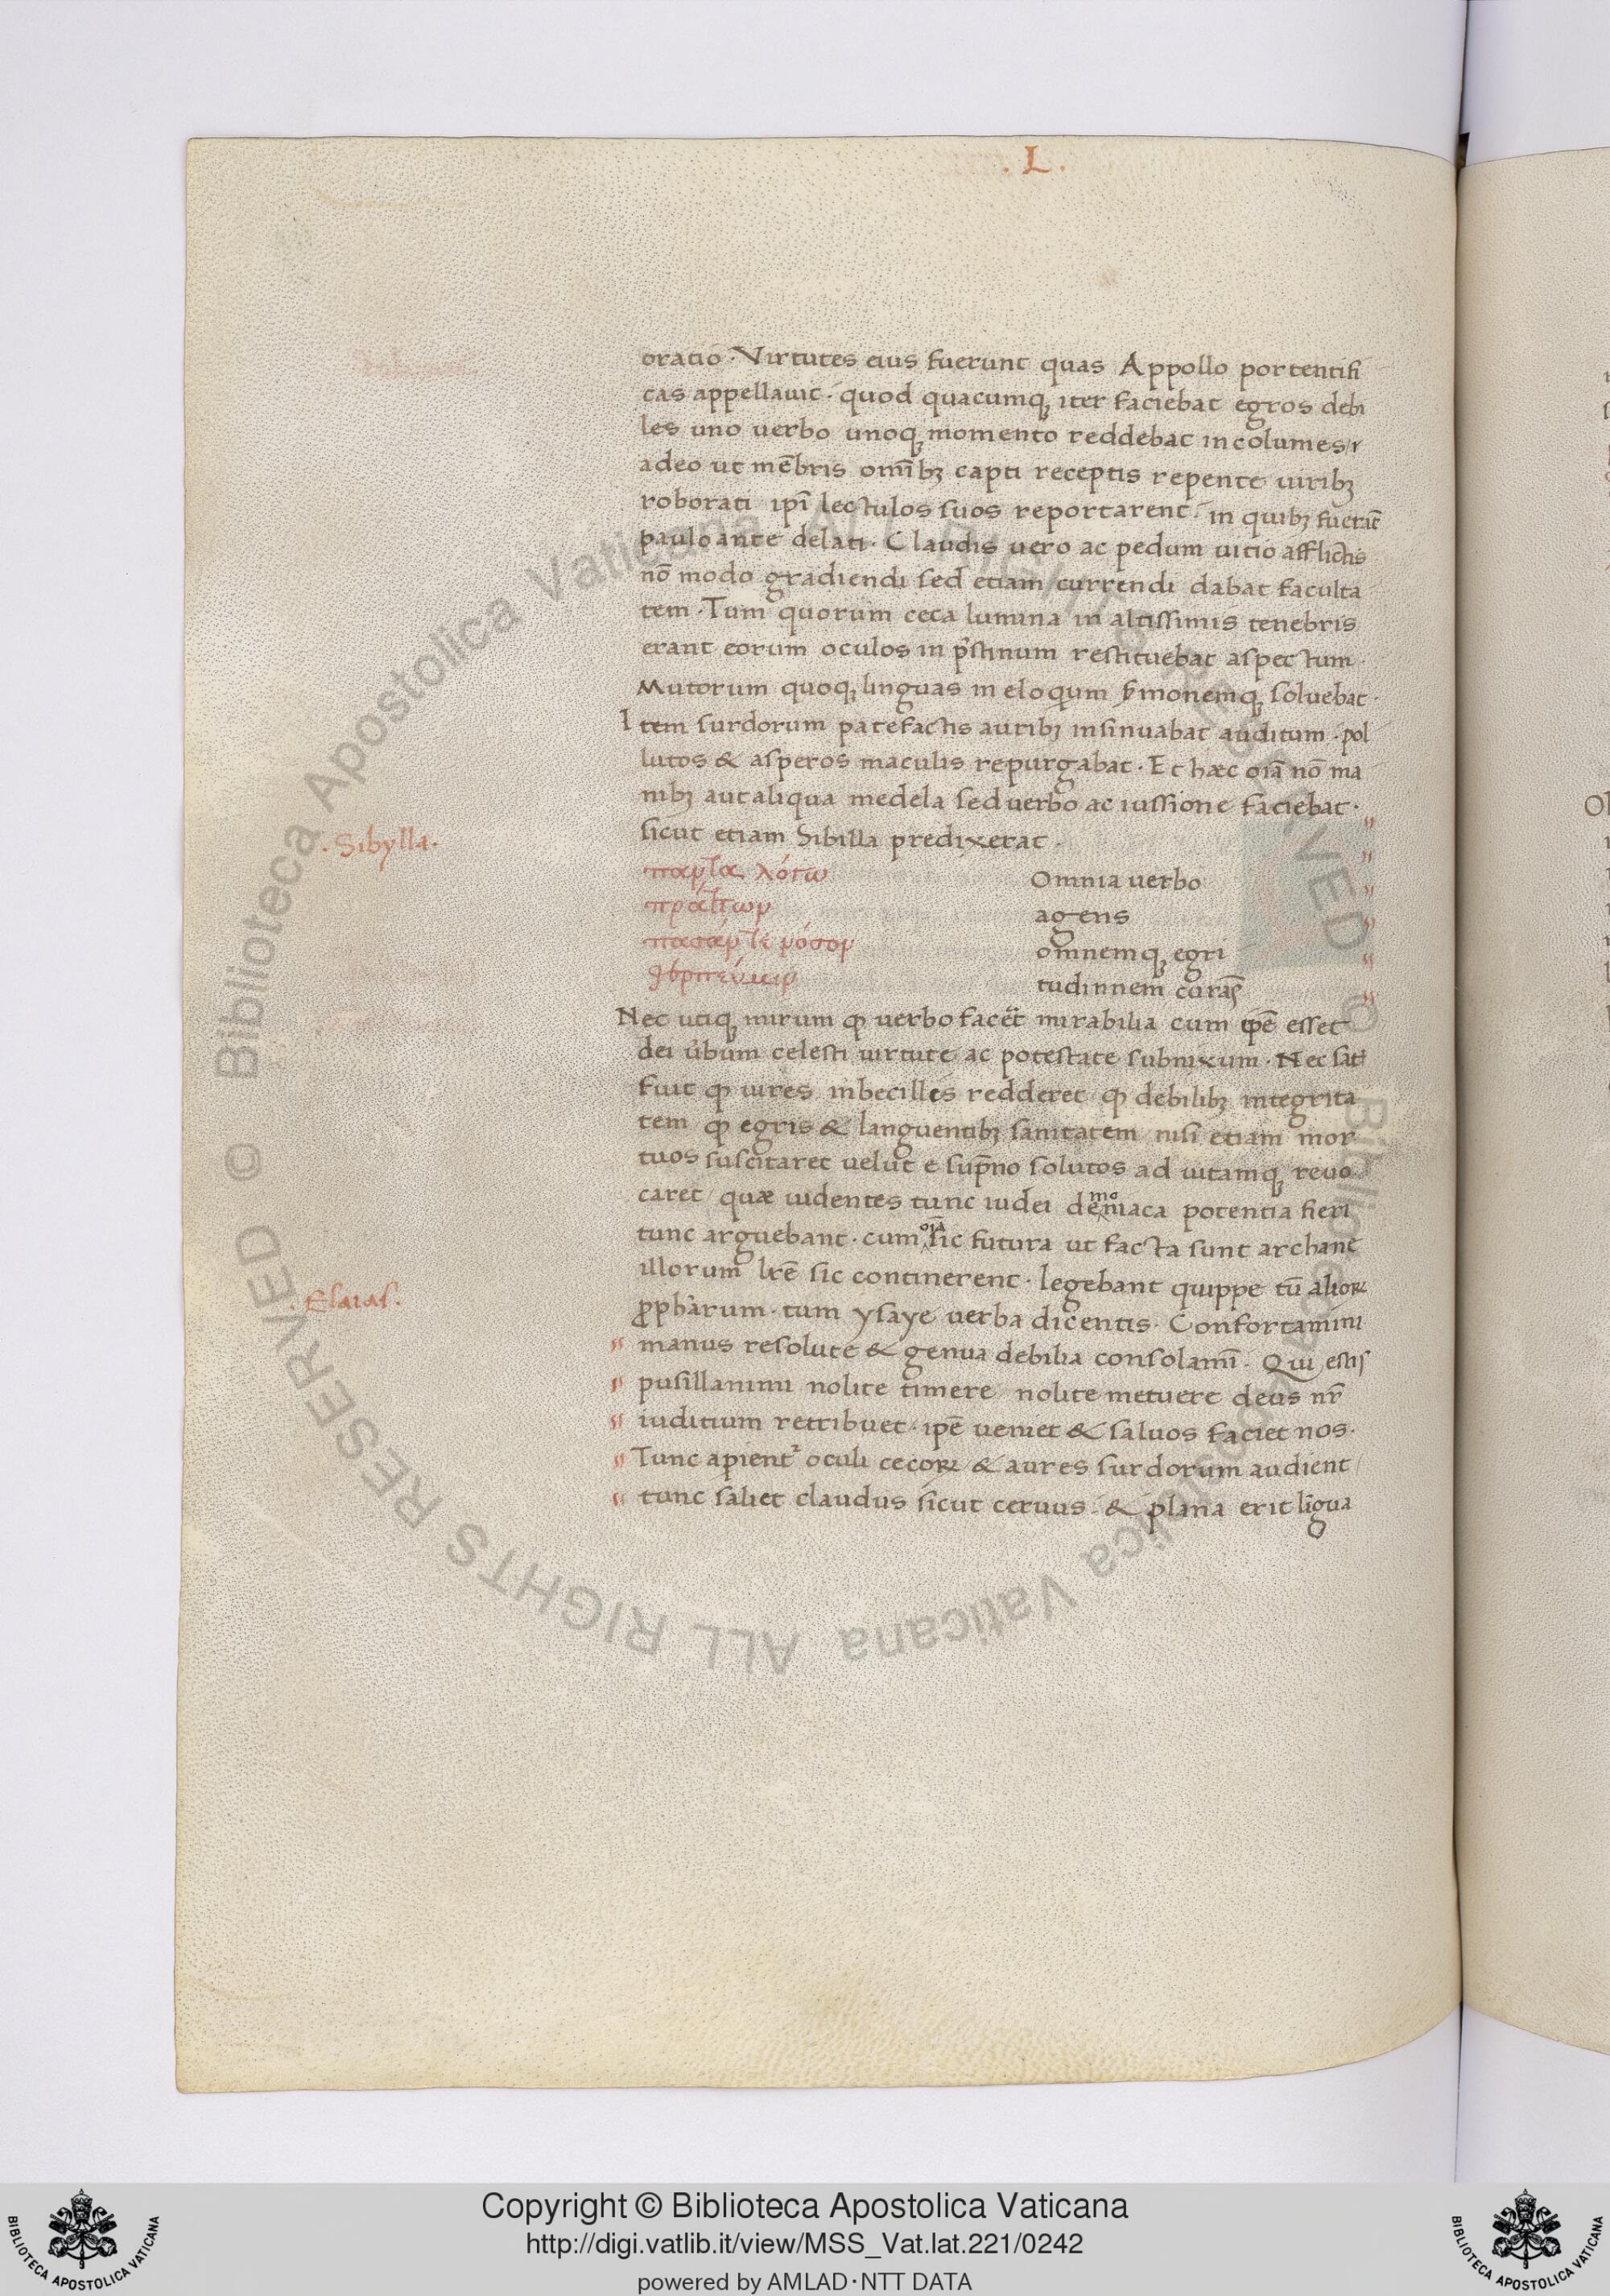 . L .
oratio · Virtutes eius fuerunt quas Appollo portentifi
cas appellauit · quod quacumqꝫ iter faciebat egros debi
les uno verbo unoqꝫ momento reddebat incolumes /
adeo ut mēbris oīnibꝫ capti receptis repente uiribꝫ
roborati ipī lectulos suos reportarent · in quibꝫ fuerāt
paulo ante delati · Claudis vero ac pedum uitio afflictis
nō modo gradiendi sed etiam currendi dabat faculta
tem · Tum quorum ceca lumina in altissimis tenebris
erant eorum oculos in p̄stinum restituebat aspectum ·
Mutorum quoqꝫ linguas in eloquim s̄monemqꝫ soluebat ·
Item surdorum patefactis auribꝫ insinuabat auditum · pol
lutos & asperos maculis repurgabat · Et hæc oīa nō ma
nibꝫ aut aliqua medela sed verbo ac iussione faciebat ·
. Sibylla.
sicut etiam Sibilla predixerat ·
πάρτα λόγω Omnia uerbo
πράττωρ agens
πασάρτε ρόσορ omnemqꝫ egri
tudinnem curās
Nec utiqꝫ mirum ꝙ verbo facēt mirabilia cum ipē esset
dei u̇bum celesti uirtute ac potestate subnixum · Nec sat
fuit ꝙ uires inbecilles redderet / ꝙ debilibꝫ integrita
tem ꝙ egris & languentibꝫ sanitatem / nisi etiam mor
tuos suscitaret uelut e sup̄no solutos ad uitamqꝫ reuo
caret / quæ uidentes tunc iudei demoniaca potentia fieri
tunc arguebant · cum oīa sic futura ut facta sunt archane
illorum lr̄e sic continerent · legebant quippe tū alioꝝ
. Esaias.
ꝓphārum · tum ysaye verba dicentis · Confortamini
" manus resolute & genua debilia consolamī · Qui estis
" pusillanimi nolite timere / nolite metuere deus nr̄
" iuditium retribuet · ipē ueniet & saluos faciet nos ·
" Tunc apient᷑ oculi cecoꝝ & aures surdorum audient /
" tunc saliet claudus sicut ceruus · & plana erit līgua
© Biblioteca Apostolica Vaticana ALL RIGHTS RESERVED © Biblioteca Apostolica Vaticana ALL RIGHTS RESERVED
BIBLIOTECA APOSTOLICA VATICANA
Copyright © Biblioteca Apostolica Vaticana
http://digi.vatlib.it/view/MSS_Vat.lat.221/0242
powered by AMLAD·NTT DATA
BIBLIOTECA APOSTOLICA VATICANA